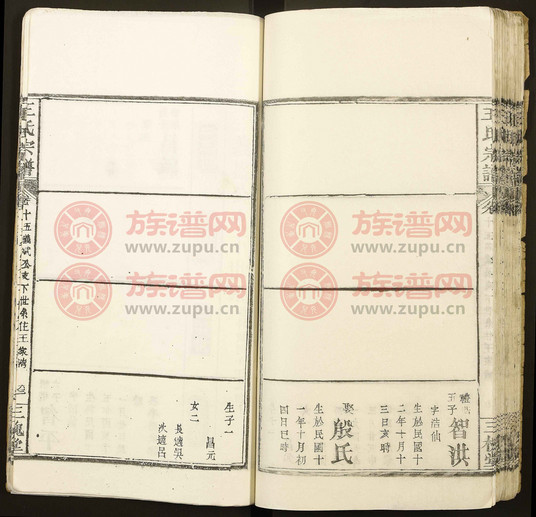 王氏宗譜
三槐堂
玉子
智洪
字浩仙
生於民國十
二年十月十
三日亥時
娶殷氏
生於民國十
一年十月初
四日巳時
生子一
昌元
女二
長適吳
次適呂
王氏宗譜
卷十五
支下世系住王家灣
三槐堂
族谱网
www.zupu.cn
族谱网
www.zupu.cn
族谱网
www.zupu.cn
族谱网
www.zupu.cn